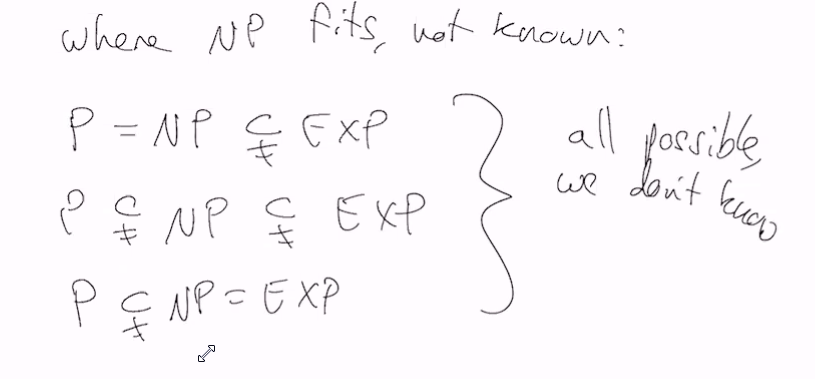 where NP fits, not known:
P = NP ⊊ EXP
P ⊊ NP ⊊ EXP
P ⊊ NP = EXP
all possible,
we don't know